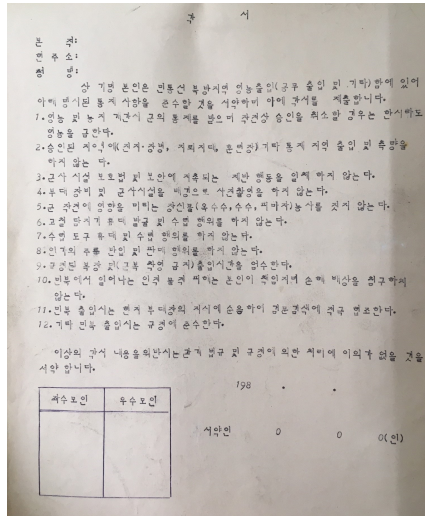 각 서
본 적:
현 주 소:
성 명:
상 기 본인은 민통선 북방지역 영농출입(군무 출입 및 기타)함에 있어
아래 명시된 통제 사항을 준수할 것을 서약하며 이에 각서를 제출합니다.
1. 영농 및 농지 개간시 군의 통제를 받으며 관련상 승인을 취소할 경우는 한시라도
영농을 금한다.
2. 승인된 지역에( 지뢰지대 ) 기타 통제 지역 출입 및 촉망을
하지 않는다.
3. 군사 시설 보호법 및 보안에 저촉되는 행동을 일체 하지 않는다.
4. 부대 장비 및 군사시설을 배경으로 사진촬영을 하지 않는다.
5. 군 작전에 영향을 미치는 (옥수수, 수수, 피마자)농사를 짓지 않는다.
6. 행위를 하지 않는다.
7. 수렵 도구 휴대 및 수렵 행위를 하지 않는다.
8. 주류 반입 및 판매 행위를 하지 않는다.
9. 규정된 복장 및 출입시간을 엄수한다.
10. 민북에서 일어나는 인명 피해는 본인이 책임지며 손해 배상을 청구하지
않는다.
11. 민북 출입시는 현지 부대장의 지시에 순응하며 적극 협조한다.
12. 기타 민북 출입시는 규정에 준수한다.
이상의 각서 내용을 위반시는 관계 법규 및 규정에 의한 처벌에 이의가 없을 것을
서약 합니다.
198 . .
좌수모인 우수모인
서약인 0 0 0(인)